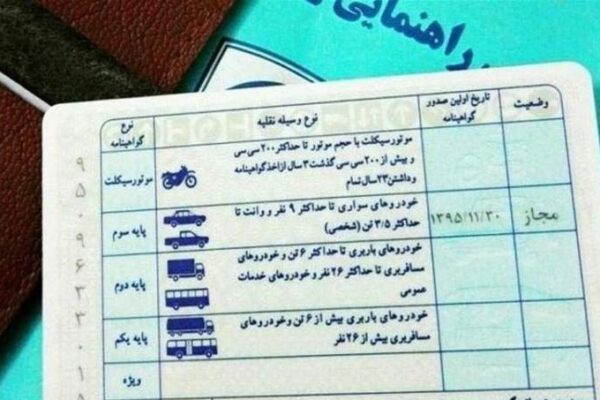 راهنمایی
وضعیت
تاریخ اولین صدور
گواهینامه
نوع وسیله نقلیه
نوع
گواهینامه
موتورسیکلت با حجم موتور تا حداکثر ۲۰۰ سی سی
و بیش از ۲۰۰ سی سی گذشت ۳ سال از اخذ گواهینامه
و داشتن ۲۳ سال تمام
موتورسیکلت
مجاز
۱۳۹۵/۱۱/۳۰
خودروهای سواری تا حداکثر ۹ نفر و وانت تا
حداکثر ۳/۵ تن (شخصی)
پایه سوم
خودروهای باربری تا حداکثر ۶ تن و خودروهای
مسافربری تا حداکثر ۲۶ نفر و خودروهای خدمات
عمومی
پایه دوم
خودروهای باربری بیش از ۶ تن و خودروهای
مسافربری بیش از ۲۶ نفر
پایه یکم
ویژه
۹
۵
۰
۹
۶
۳
۳
۰
۱